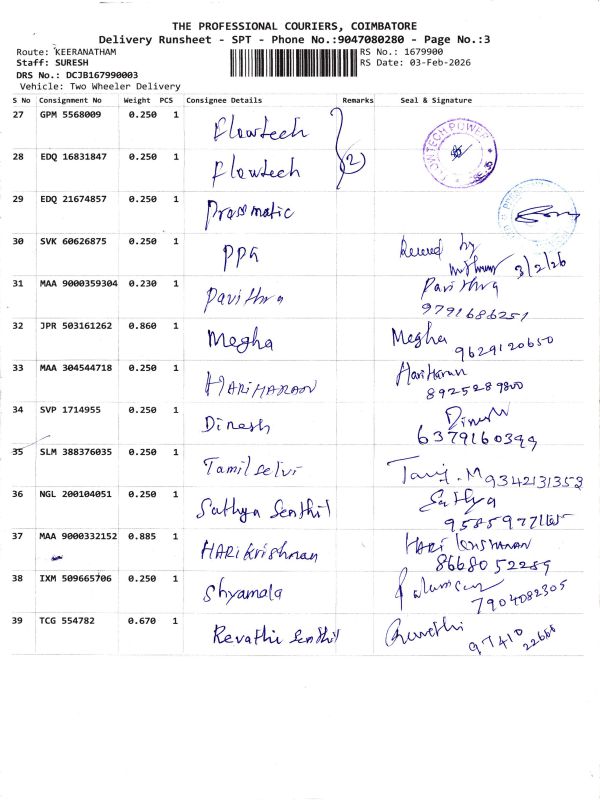 THE PROFESSIONAL COURIERS, COIMBATORE
Delivery Runsheet - SPT - Phone No.:9047080280 - Page No.:3
Route: KEERANATHAM RS No.: 1679900
Staff: SURESH RS Date: 03-Feb-2026
DRS No.: DCJB167990003
Vehicle: Two Wheeler Delivery
S No Consignment No Weight PCS Consignee Details Remarks Seal & Signature
27 GPM 5568009 0.250 1 Flowtech
28 EDQ 16831847 0.250 1 Flowtech 2
29 EDQ 21674857 0.250 1 Prossmatic
30 SVK 60626875 0.250 1 PPG by 3/2/26
31 MAA 9000359304 0.230 1 Pavithra Pavithra
9791686251
32 JPR 503161262 0.860 1 Megha Megha 9629120650
33 MAA 304544718 0.250 1 HARIHARAN Hariharan
8925289800
34 SVP 1714955 0.250 1 Dinesh Dinesh
6379160399
35 SLM 388376035 0.250 1 Tamilselvi 9342131353
36 NGL 200104051 0.250 1 Sathya Senthil Sathya
37 MAA 9000332152 0.885 1 HARI krishnan HARI
8668052289
38 IXM 509665706 0.250 1 Shyamala
7904082305
39 TCG 554782 0.670 1 Revathi Senthil Revathi
97410